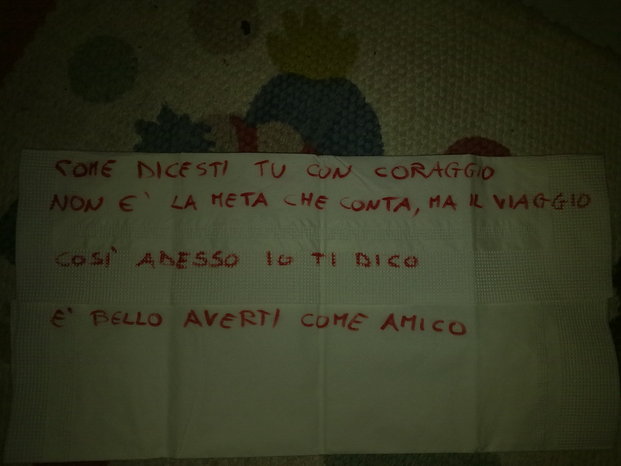 COME DICESTI TU CON CORAGGIO
NON E' LA META CHE CONTA, MA IL VIAGGIO
COSI' ADESSO IO TI DICO
E' BELLO AVERTI COME AMICO